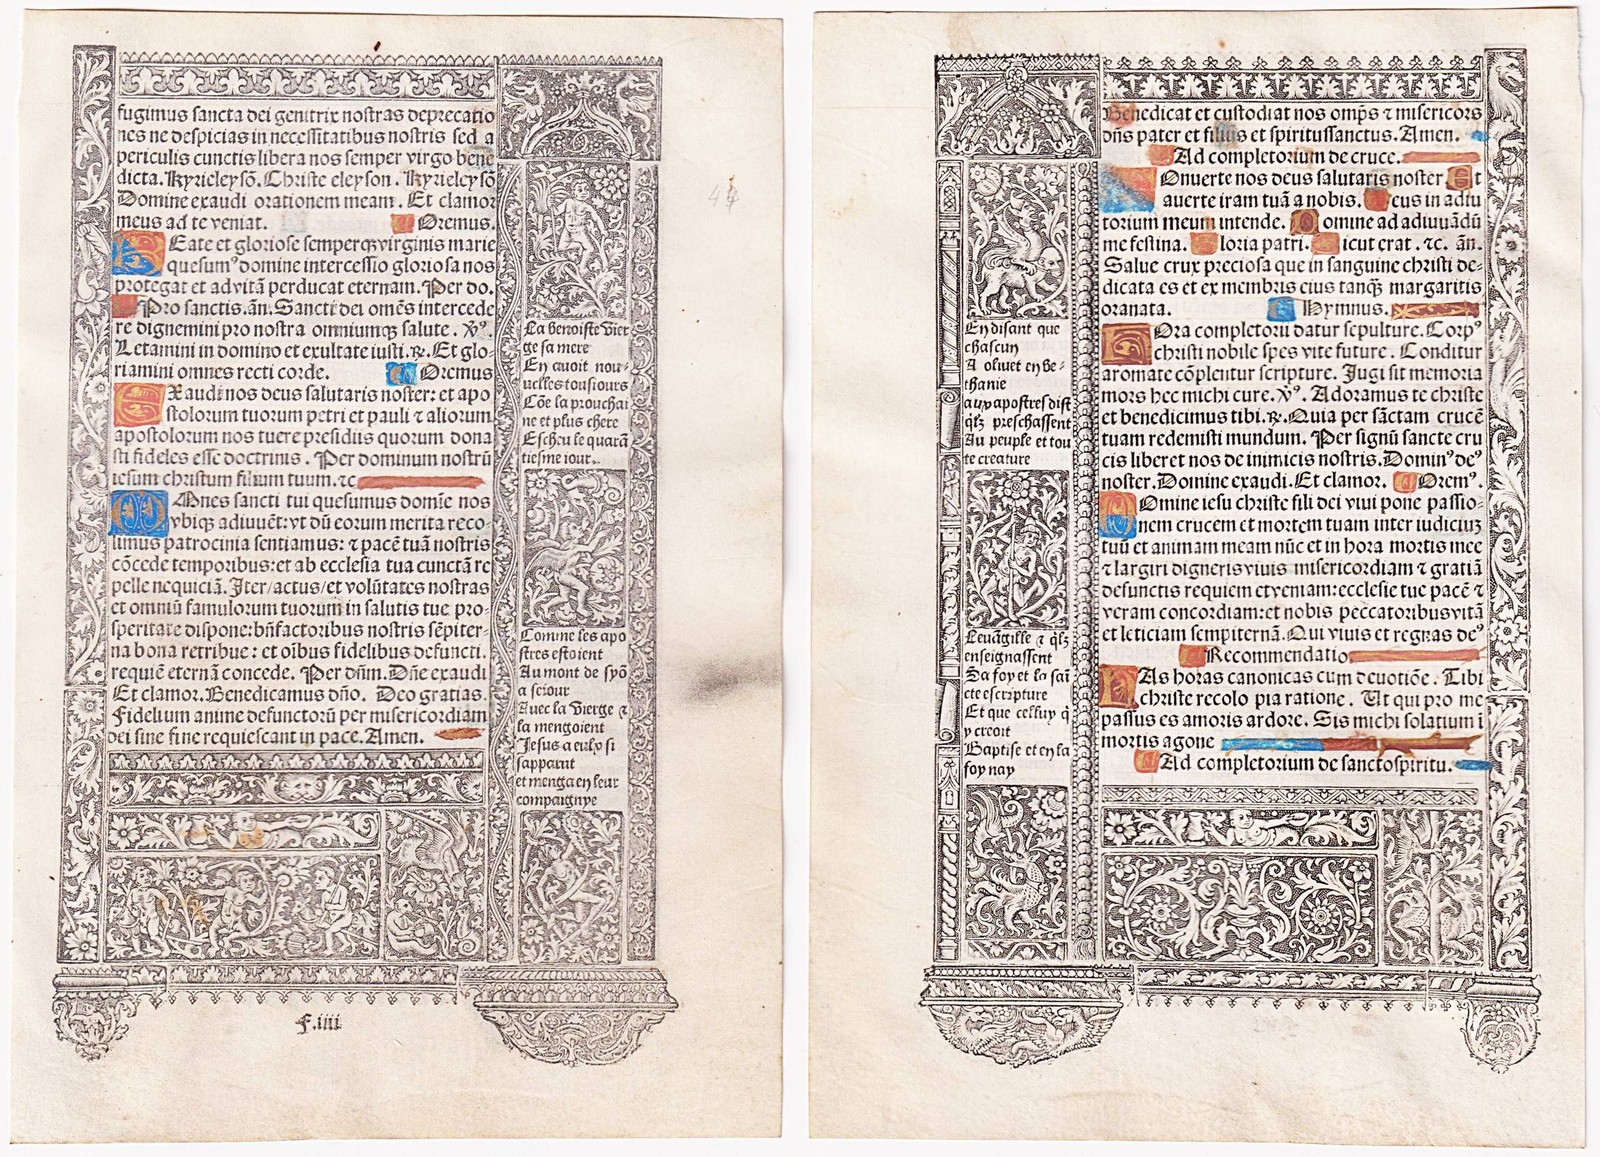 fugimus sancta dei genitrix nostras deprecatio
nes ne despicias in necessitatibus nostris sed a
periculis cunctis libera nos semper virgo bene
dicta. Kyrieleysō. Christe eleyson. Kyrieleysō
Domine exaudi orationem meam. Et clamor
meus ad te veniat. Oremus.
BEate et gloriose semperqꝫ virginis marie
quesumꝰ domine intercessio gloriosa nos
protegat et ad vitā perducat eternam. Per do.
Pro sanctis. añ. Sancti dei omēs intercede
re dignemini pro nostra omniumqꝫ salute. ℣ꝰ.
Letamini in domino et exultate iusti. ℟. Et glo-
riamini omnes recti corde. Oremus
EXaudi nos deus salutaris noster: et apo
stolorum tuorum petri et pauli ⁊ aliorum
apostolorum nos tuere presidiis quorum dona
sti fideles esse doctrinis. Per dominum nostrū
iesum christum filium tuum. ⁊c
OMnes sancti tui quesumus domīe nos
vbiqꝫ adiuuēt: vt dū eorum merita reco-
limus patrocinia sentiamus: ⁊ pacē tuā nostris
cōcede temporibus: et ab ecclesia tua cunctā re
pelle nequiciā. Iter/actus/et volūtates nostras
et omniū famulorum tuorum in salutis tue pro-
speritate dispone: bñfactoribus nostris sēpiter-
na bona retribue: et oībus fidelibus defuncti.
requiē eternā concede. Per dñm. Dñe exaudi
Et clamor. Benedicamus dño. Deo gratias.
Fidelium anime defunctorū per misericordiam
dei sine fine requiescant in pace. Amen.
La benoiste vier
ge sa mere
En auoit nou-
uelles tousiours
Cōe la prouchai
ne et plus chere
Escheu le quarā
tiesme iour.
Comme les apo
stres estoient
Au mont de syō
a seiour
Auec la vierge ⁊
la mengoient
Jesus a eulx si
sapparut
et menga en leur
compaignye
F.iiii
44
En disant que
chascun
A osiuet en be-
thanie
aux apostres dist
qlz preschassent
Au peuple et tou
te creature
Leuāgille ⁊ qlz
enseignassent
Sa foy et la sai
cte escripture
Et que celluy q
y croit
Baptise et en la
foy nay
Benedicat et custodiat nos omp̄s ⁊ misericors
dñs pater et filius et spiritussanctus. Amen.
Ad completorium de cruce.
COnuerte nos deus salutaris noster. Et
auerte iram tuā a nobis. Deus in adiu
torium meum intende. Domine ad adiuuādū
me festina. Gloria patri. Sicut erat. ⁊c. ān.
Salue crux preciosa que in sanguine christi de-
dicata es et ex membris eius tanqꝫ margaritis
oranata. Hymnus.
HOra completorii datur sepulture. Corpꝰ
christi nobile spes vite future. Conditur
aromate cōplentur scripture. Jugi sit memoria
mors hec michi cure. ℣ꝰ. Adoramus te christe
et benedicimus tibi. ℟. Quia per sāctam crucē
tuam redemisti mundum. Per signū sancte cru
cis liberet nos de inimicis nostris. Dominꝰ deꝰ
noster. Domine exaudi. Et clamor. Oremꝰ.
DOmine iesu christe fili dei viui pone passio-
nem crucem et mortem tuam inter iudiciuꝫ
tuū et animam meam nūc et in hora mortis mee
⁊ largiri digneris viuis misericordiam ⁊ gratiā
defunctis requiem et veniam: ecclesie tue pacē ⁊
veram concordiam: et nobis peccatoribus vitā
et leticiam sempiternā. Qui viuis et regnas deꝰ
Recommendatio
HAs horas canonicas cum deuotiōe. Tibi
christe recolo pia ratione. Ut qui pro me
passus es amoris ardore. Sis michi solatium ī
mortis agone
Ad completorium de sanctospiritu.